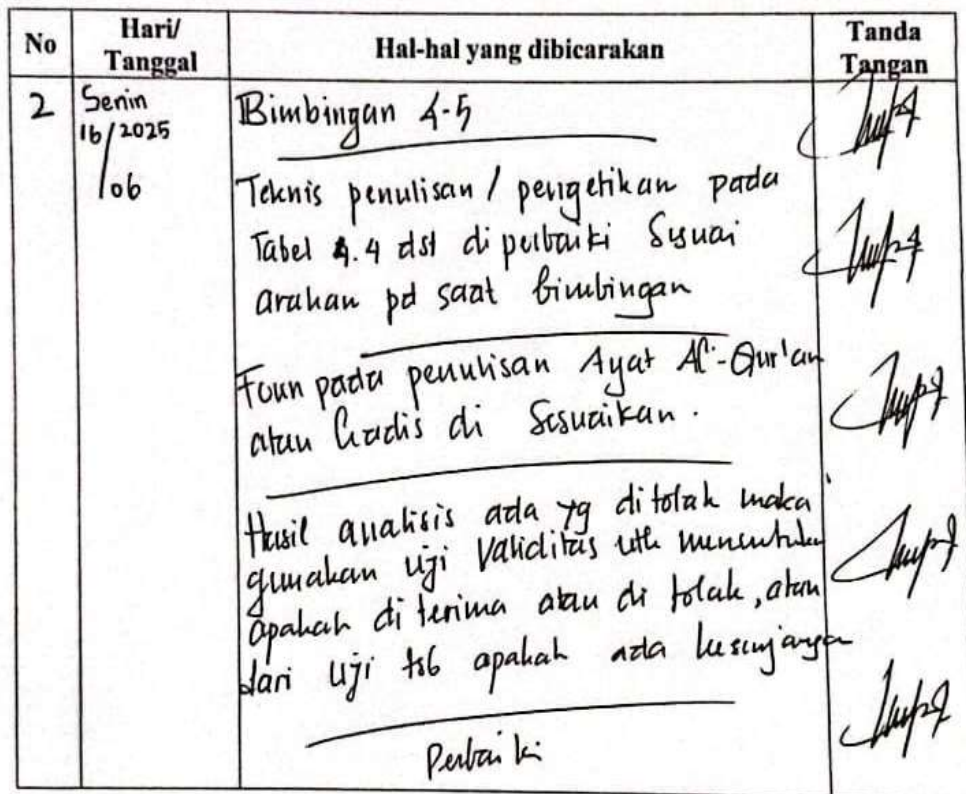 No
Hari/
Tanggal
Hal-hal yang dibicarakan
Tanda
Tangan
2
Senin
16/2025
/06
Bimbingan 4-5
Teknis penulisan / pengetikan pada
Tabel 4.4 dst di perbaiki Sesuai
arahan pd saat bimbingan
pada penulisan Ayat Al-Qur'an
atau hadis di Sesuaikan.
Hasil analisis ada yg di tolak maka
gunakan Uji Validitas utk menentukan
apakah di terima atau di tolak, atau
dari Uji tsb apakah ada kesenjangan
Perbaiki